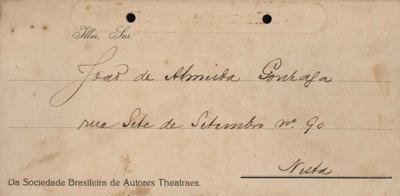 Illm. Snr.
João de Almeida Gonzaga
rua Sete de Setembro nº 90
Nesta
Da Sociedade Brasileira de Autores Theatraes.